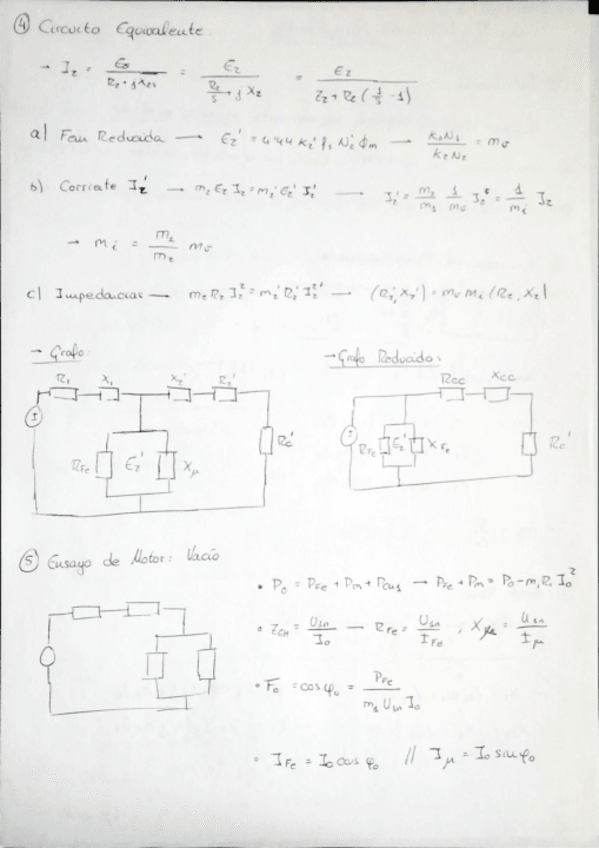 ④ Circuito Equivalente.
→ I₂ = E₂ₛ / (R₂ + jX₂ₛ) = E₂ / (R₂/s + jX₂) = E₂ / (Z₂ + R₂(1/s - 1))
a) Fem Reducida → E₂' = 4'44 K₂' f₁ N₂' ϕm → K₁N₁ / K₂N₂ = mᵥ
b) Corriente I₂' → m₂ E₂ I₂ = m₂' E₂' I₂' → I₂' = m₂/m₁ 1/mᵥ I₂ = 1/mᵢ I₂
→ mᵢ = m₁/m₂ mᵥ
c) Impedancias → m₂ R₂ I₂² = m₂' R₂' I₂'² → (R₂', X₂') = mᵥ mᵢ (R₂, X₂)
→ Grafo:
→ Grafo Reducido:
R₁ X₁ X₂' R₂'
Rcc Xcc
RFe E₂' Xμ Rc'
RFe E₂' XFe Rc'
⑤ Ensayo de Motor: Vacío
• P₀ = PFe + Pm + Pcu₁ → PFe + Pm = P₀ - m₁ R₁ I₀²
→ RFe = U₁ₙ / IFe , Xμ = U₁ₙ / Iμ
• F₀ = cos φ₀ = PFe / (m₁ U₁ₙ I₀)
• IFe = I₀ cos φ₀ // Iμ = I₀ sin φ₀